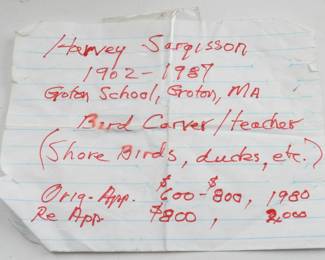 Harvey Sargisson
1902-1987
Groton School, Groton, MA
Bird Carver/teacher
(Shore Birds, ducks, etc.)
Orig-App. $600-$800, 1980
Re App. $800, 2000